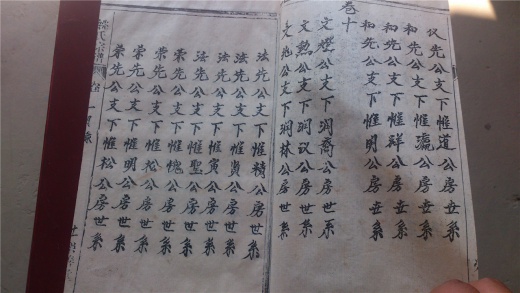 仪先公支下惟道公房世系
和先公支下惟瀛公房世系
和先公支下惟祥公房世系
和先公支下惟明公房世系
卷十
文公支下润裔公房世系
文勲公支下润议公房世系
文兆公支下润林公房世系
法先公支下惟精公房世系
法先公支下惟贞公房世系
法先公支下惟寅公房世系
法先公支下惟聖公房世系
荣先公支下惟愧公房世系
荣先公支下惟松公房世系
荣先公支下惟明公房世系
荣先公支下惟松公房世系